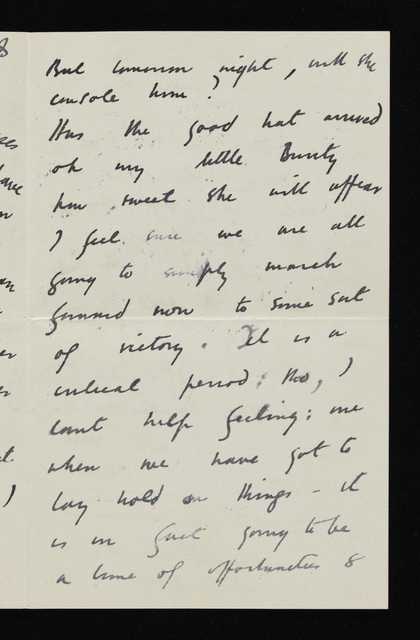 But tomorrow night, will she
console him?
Has the good hat arrived
oh my little Bunty
how sweet she will appear
I feel sure we are all
going to simply march
forward now to some sort
of victory. It is a
critical period; tho, I
cant help feeling; one
when we have got to
lay hold on things - it
is in fact going to be
a time of opportunities &